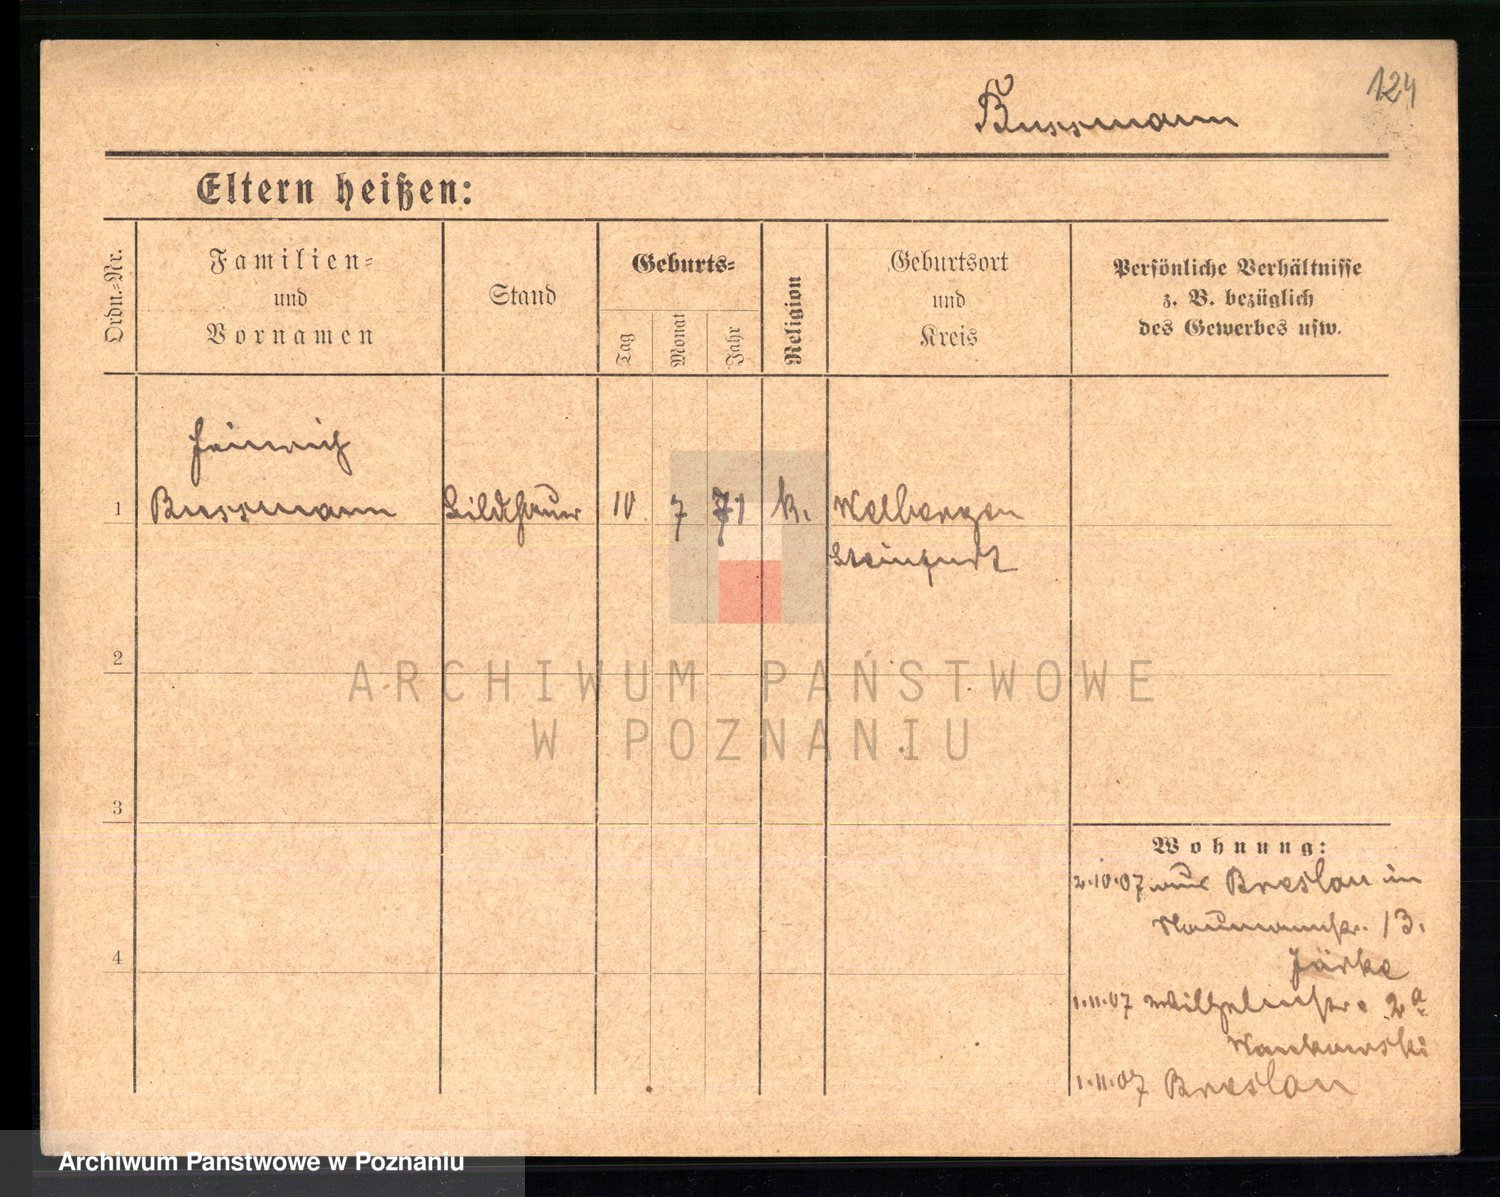 124
Bussmann
Eltern heißen:
Ordn.-Nr.
Familien-
und
Vornamen
Stand
Geburts-
Tag
Monat
Jahr
Religion
Geburtsort
und
Kreis
Persönliche Verhältnisse
z. B. bezüglich
des Gewerbes usw.
Heinrich
1 Bussmann Bildhauer 10 7 71 k. Welbergen
Steinfurt
2
ARCHIWUM PAŃSTWOWE
W POZNANIU
3
Wohnung:
2.10.07 aus Breslau in
Naumannstr. 13.
Järke
1.11.07 Wilhelmstr. 2a
1.11.07 Breslau
4
Archiwum Państwowe w Poznaniu